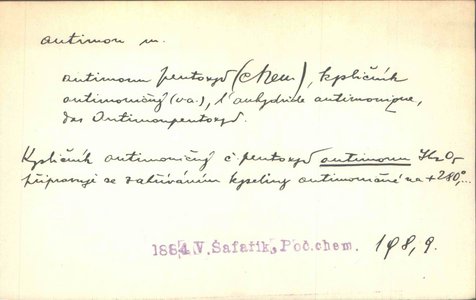 antimon m.
antimonu pentoxyd (chem), kysličník
antimoničný (v.a.), l'anhydride antimonique,
das Antimonpentoxyd.
Kysličník antimoničný č. pentoxyd antimonu
připravuje se zahříváním kyseliny antimoničné na +280°...
1884 V. Šafařík, Poč. chem. 198, 9.